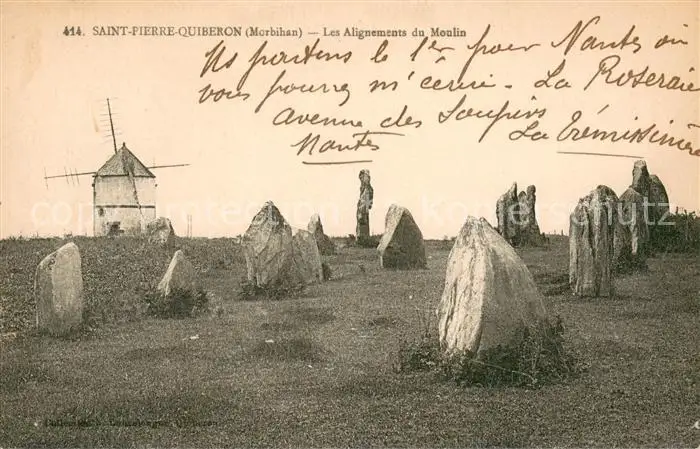 414. SAINT-PIERRE-QUIBERON (Morbihan) — Les Alignements du Moulin
Nous partons le 1er pour Nantes où
vous pourrez m'écrire - La Roseraie
Avenue des Soupirs La Trémissinière
Nantes
Collection
Quiberon